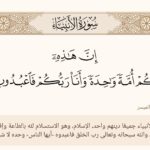 سورة الأنبياء
إن هذه
كم أمة واحدة وأنا ربكم فاعبدون
الأنبياء جميعًا دينهم واحد، الإسلام، وهو الاستسلام لله بالطاعة وإفراده
والله سبحانه وتعالى رب الخلق فاعبدوه -أيها الناس- وحده لا شريك